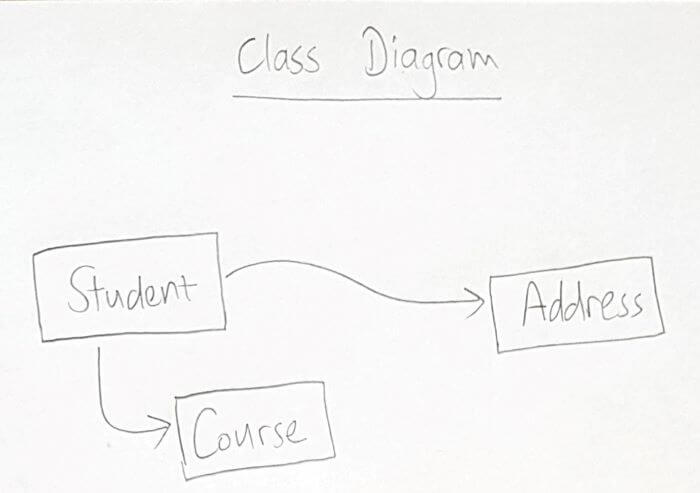 Class Diagram
Student
Address
Course